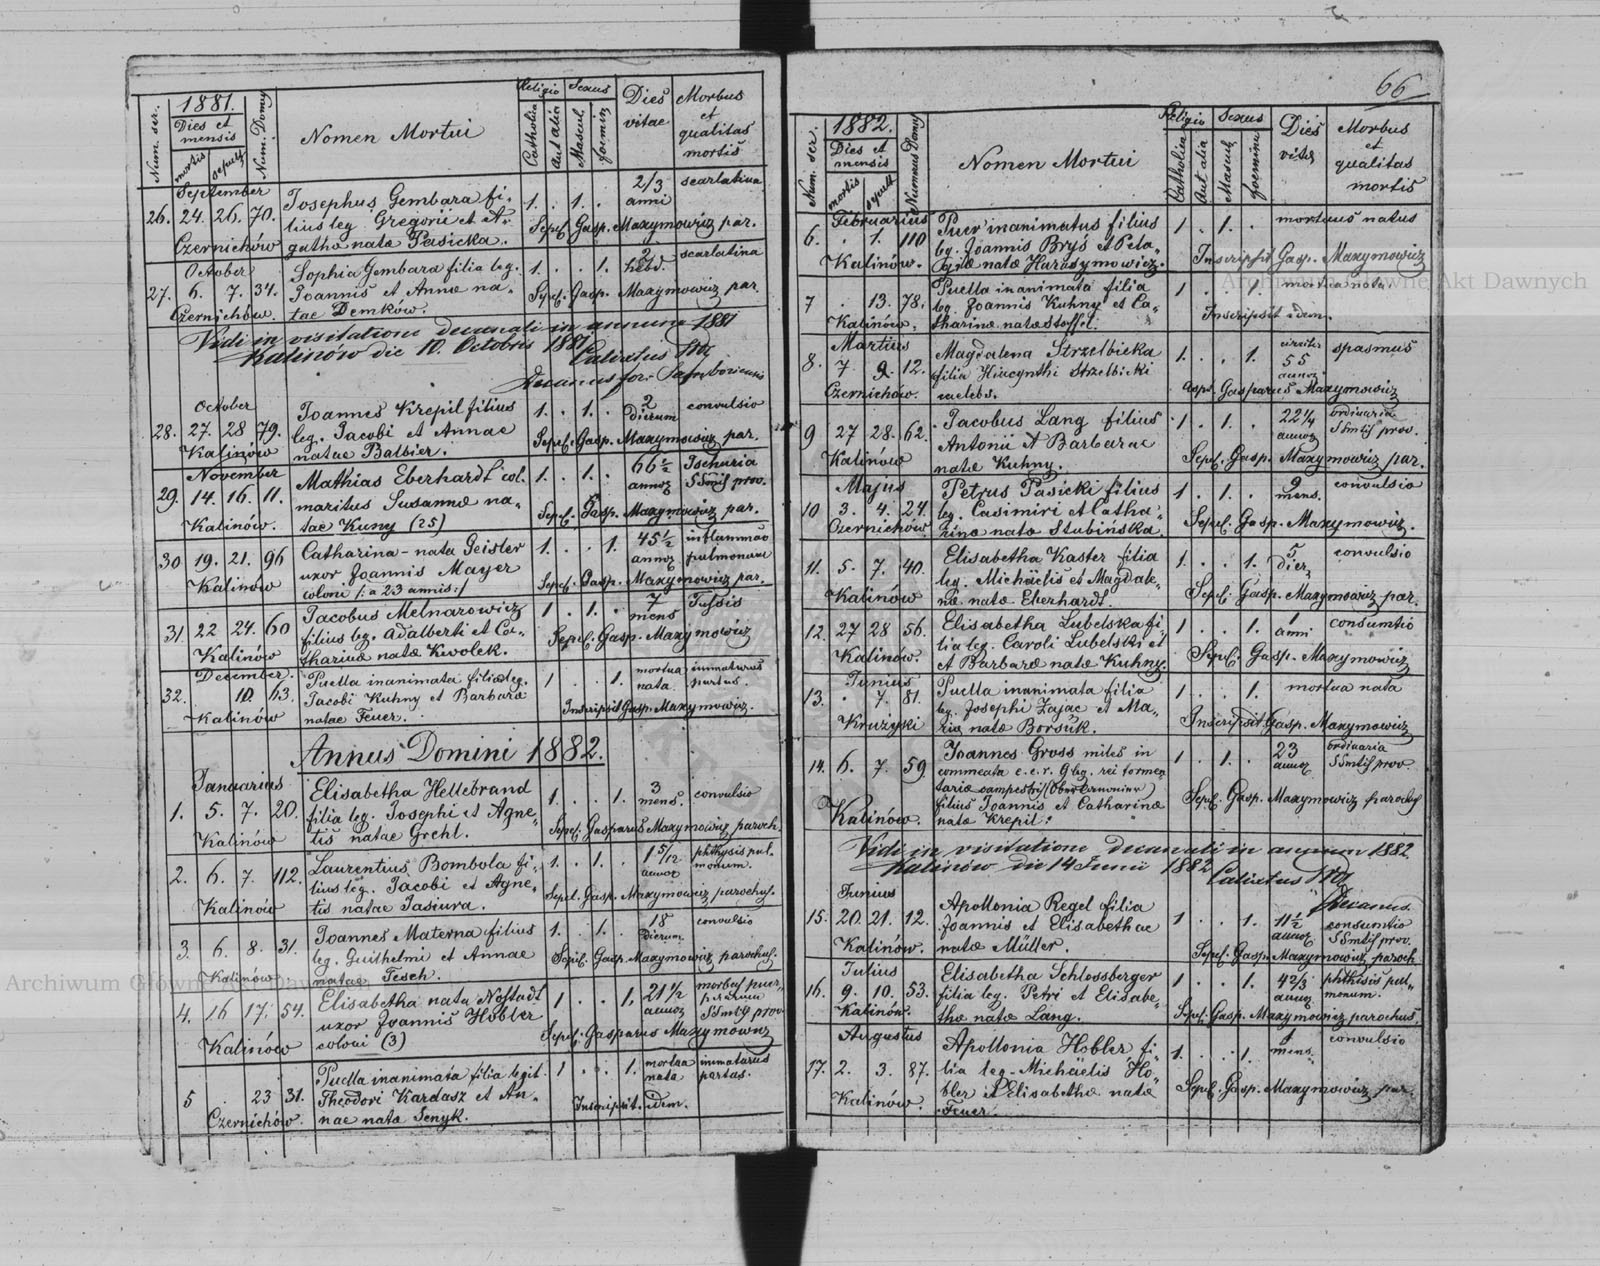 66
1881.
Num. ser.
Dies et mensis
mortis
sepult.
Num. Domy
Nomen Mortui
Religio
Catholica
aut alia
Sexus
Mascul.
foemin.
Dies vitae
Morbus et qualitas mortis
September
26. 24. 26. 70. Josephus Gembara fi- 1. . 1. . 2/3 anni scarlatina
lius leg. Gregorii et A- Sepel. Gasp. Maxymowicz par.
Czernichów gatha nata Pasicka.
October
Sophia Gembara filia leg. 1. . . 1. 2 hebd. scarlatina
27. 6. 7. 34. Joannis et Annae na- Sepel. Gasp. Maxymowicz par.
Czernichów tae Demków.
Vidi in visitatione decanali in annum 1881
Kalinów die 10. Octobris 1881. Calixtus
Decanus for.
October
Joannes Krepil filius 1. . 1. . 2 dierum convulsio
28. 27. 28 79. leg. Jacobi et Annae Sepel. Gasp. Maxymowicz par.
Kalinów natae Balbier.
November
Mathias Eberhardt col. 1. . 1. . 66 1/2 annor Ischuria SSmis prov.
29. 14. 16. 11. maritus Susannae na-
Kalinów. tae Kuny (25) Sepel. Gasp. Maxymowicz par.
30 19. 21. 96 Catharina - nata Geisler 1. . . 1. 45 1/2 annor inflammao pulmonum
uxor Joannis Mayer
Kalinów coloni /: a 23 annis :/ Sepel. Gasp. Maxymowicz par.
31 22 24. 60 Jacobus Melnarowicz 1 . 1. . 7 mens Tussis
filius leg. Adalberti et Ca- Sepel. Gasp. Maxymowicz
Kalinów tharinae natae Kwolek.
December.
Puella inanimata filia leg. 1 . . 1. mortua nata immaturus partus.
32. 10 13. Jacobi Kuhny et Barbara
Kalinów natae Feuer. Inscripsit Gasp. Maxymowicz.
Annus Domini 1882.
Januarius
Elisabetha Hellebrand 1. . . 1. 3 mens. convulsio
1. 5. 7. 20. filia leg. Josephi et Agne-
Kalinów tis natae Grehl. Sepel. Gasparus Maxymowicz paroch.
2. 6. 7. 112. Laurentius Bombola fi- 1. . 1. . 1 5/12 annor phthysis pul- monum.
lius leg. Jacobi et Agne-
Kalinów tis natae Jasiura. Sepel. Gasp. Maxymowicz parochus.
3. 6. 8. 31. Joannes Materna filius 1. . 1. . 18 dierum convulsio
leg. Guilhelmi et Annae Sepel. Gasp. Maxymowicz parochus.
Kalinów natae Tesch.
4. 16 17. 54. Elisabetha nata Nofstadt 1 . . 1. 21 1/2 annor morbus puer-
uxor Joannis Hobler SSmis prov.
Kalinów coloni (3) Sepel. Gasparus Maxymowicz
Puella inanimata filia legit. 1 . . 1. mortua nata immaturus partus.
5 . 23 31. Theodori Kardasz et An-
Czernichów. nae nata Senyk. Inscripsit idem.
1882.
Num. ser.
Dies et mensis
mortis
sepult
Numerus Domy
Nomen Mortui
Religio
Catholica
Aut alia
Sexus
Mascul.
foeminin.
Dies vitae
Morbus et qualitas mortis
Februarius
6. . 1. 110 Puer inanimatus filius 1 . 1. . mortuus natus
leg. Joannis Bryś et Pela-
Kalinów. giae natae Harasymowicz. Inscripsit Gasp. Maxymowicz
7 . 13. 78. Puella inanimata filia 1 . . 1. mortua nata
leg. Joannis Kuhny et Ca- Inscripsit idem.
Kalinów. tharinae natae Stoffel.
Martius
8. 7 9. 12. Magdalena Strzelbicka 1. . . 1. circiter 55 annor spasmus
filia Hiacynthi Strzelbicki
Czernichów. caelebs. Gasparus Maxymowicz
9 27 28. 62. Jacobus Lang filius 1 . 1. . 22 1/4 annor ordinaria SSmis prov.
Antonii et Barbarae
Kalinów natae Kuhny. Sepel. Gasp. Maxymowicz par.
Majus
10 3. 4. 24. Petrus Pasicki filius 1 . 1. . 9 mens. convulsio
leg. Casimiri et Catha- Sepel. Gasp. Maxymowicz.
Czernichów. rinae nata Stubińska.
11. 5. 7. 40. Elisabetha Kaster filia 1. . . 1. 5 dier. convulsio
leg. Michaëlis et Magdale-
Kalinów nae natae Eberhardt. Sepel. Gasp. Maxymowicz par.
12. 27 28 56. Elisabetha Lubelska fi- 1 . . 1. 1 anni consumtio
lia leg. Caroli Lubelski et
Kalinów. et Barbarae natae Kuhny. Sepel. Gasp. Maxymowicz
Junius
13. . 7. 81. Puella inanimata filia 1 . . 1. mortua nata
leg. Josephi Zając et Ma-
Kružyki riae natae Borsuk. Inscripsit Gasp. Maxymowicz
14. 6. 7. 59 Joannes Gross miles in 1 . 1. . 23 annor ordinaria SSmis prov.
commeata c. c. r. 9 leg. rei tormen
tariae campestris
Kalinów. filius Joannis et Catharinae Sepel. Gasp. Maxymowicz parochus
natae Krepil.
Vidi in visitatione decanali in annum 1882
Kalinów die 14 Junii 1882 Calixtus
Decanus.
Junius
15. 20. 21. 12. Apollonia Regel filia 1 . . 1. 11 1/2 annor consumtio SSmis prov.
Joannis et Elisabethae
Kalinów. natae Müller. Sepel. Gasp. Maxymowicz, paroch.
Julius
16. 9. 10. 53. Elisabetha Schlossberger 1 . . 1. 4 2/3 annor phthisis pul- monum.
filia leg. Petri et Elisabe-
Kalinów. thae natae Lang. Sepel. Gasp. Maxymowicz parochus.
Augustus
17. 2. 3. 87. Apollonia Hobler fi- 1. . . 1. 1 mens. convulsio
lia leg. Michaëlis Ho-
Kalinów. bler et Elisabethae natae Sepel. Gasp. Maxymowicz par.
Feuer.
Archiwum Główne Akt Dawnych
Archiwum Główne Akt Dawnych